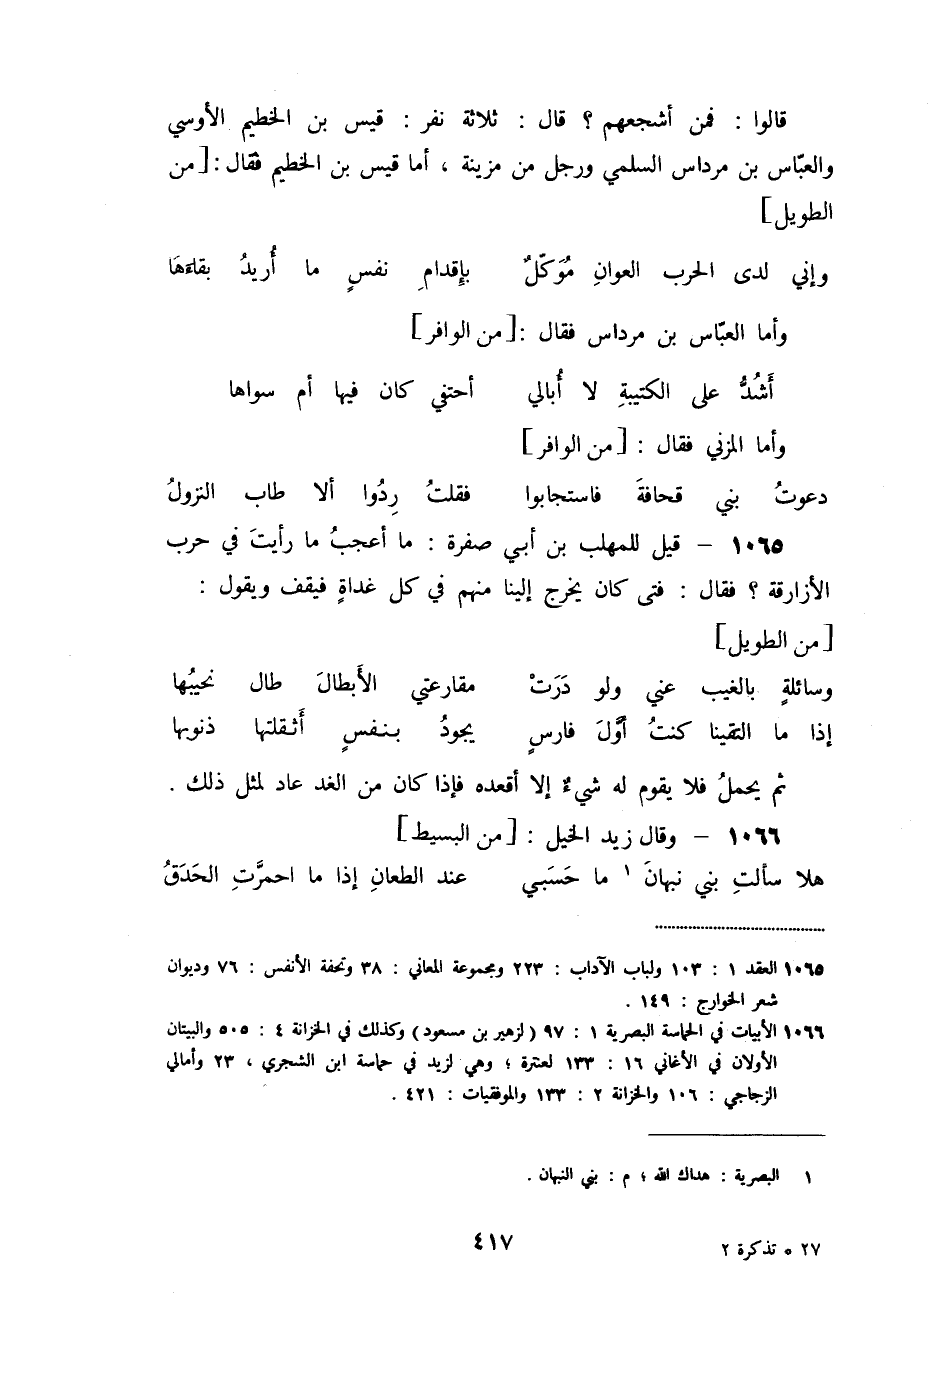 قالوا : فمن أشجعهم ؟ قال : ثلاثة نفر : قيس بن الخطيم الأوسي
والعبّاس بن مرداس السلمي ورجل من مزينة ، أما قيس بن الخطيم فقال : [من
الطويل]
وإني لدى الحرب العوانِ مُوَكّلٌ بإقدامِ نفسٍ ما أُريدُ بقاءَهَا
وأما العبّاس بن مرداس فقال : [من الوافر]
أَشُدُّ على الكتيبةِ لا أُبالي أحتفي كان فيها أم سواها
وأما المزني فقال : [من الوافر]
دعوتُ بني قحافةَ فاستجابوا فقلتُ رِدُوا ألا طاب النزولُ
١٠٦٥ – قيل للمهلب بن أبي صفرة : ما أعجبُ ما رأيتَ في حرب
الأزارقة ؟ فقال : فتى كان يخرج إلينا منهم في كل غداةٍ فيقف ويقول :
[من الطويل]
وسائلةٍ بالغيب عني ولو دَرَتْ مقارعتي الأبطالَ طال نحيبُها
إذا ما التقينا كنتُ أوَّلَ فارسٍ يجودُ بنفسٍ أَثقلتها ذنوبها
ثم يحملُ فلا يقوم له شيءٌ إلا أقعده فإذا كان من الغد عاد لمثل ذلك .
١٠٦٦ – وقال زيد الخيل : [من البسيط]
هلا سألتِ بني نبهانَ ١ ما حَسَبي عند الطعانِ إذا ما احمرَّتِ الحَدَقُ
١٠٦٥ العقد ١ : ١٠٣ ولباب الآداب : ٢٢٣ ومجموعة المعاني : ٣٨ وتحفة الأنفس : ٧٦ وديوان
شعر الخوارج : ١٤٩ .
١٠٦٦ الأبيات في الحماسة البصرية ١ : ٩٧ (لزهير بن مسعود) وكذلك في الخزانة ٤ : ٥٠٥ والبيتان
الأولان في الأغاني ١٦ : ١٣٣ لعنترة ؛ وهي لزيد في حماسة ابن الشجري ، ٢٣ وأمالي
الزجاجي : ١٠٦ والخزانة ٢ : ١٣٣ والموفقيات : ٤٢١ .
١ البصرية : هداك الله ؛ م : بني النبهان .
٤١٧
٢٧ ه تذكرة ٢